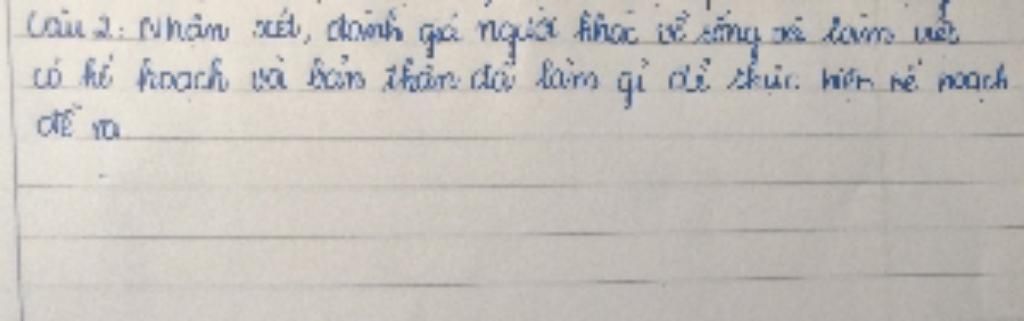 Câu 2: Nhận xét, đánh giá người khác về sống và làm việc
có kế hoạch và bản thân đã làm gì để thực hiện kế hoạch
đề ra